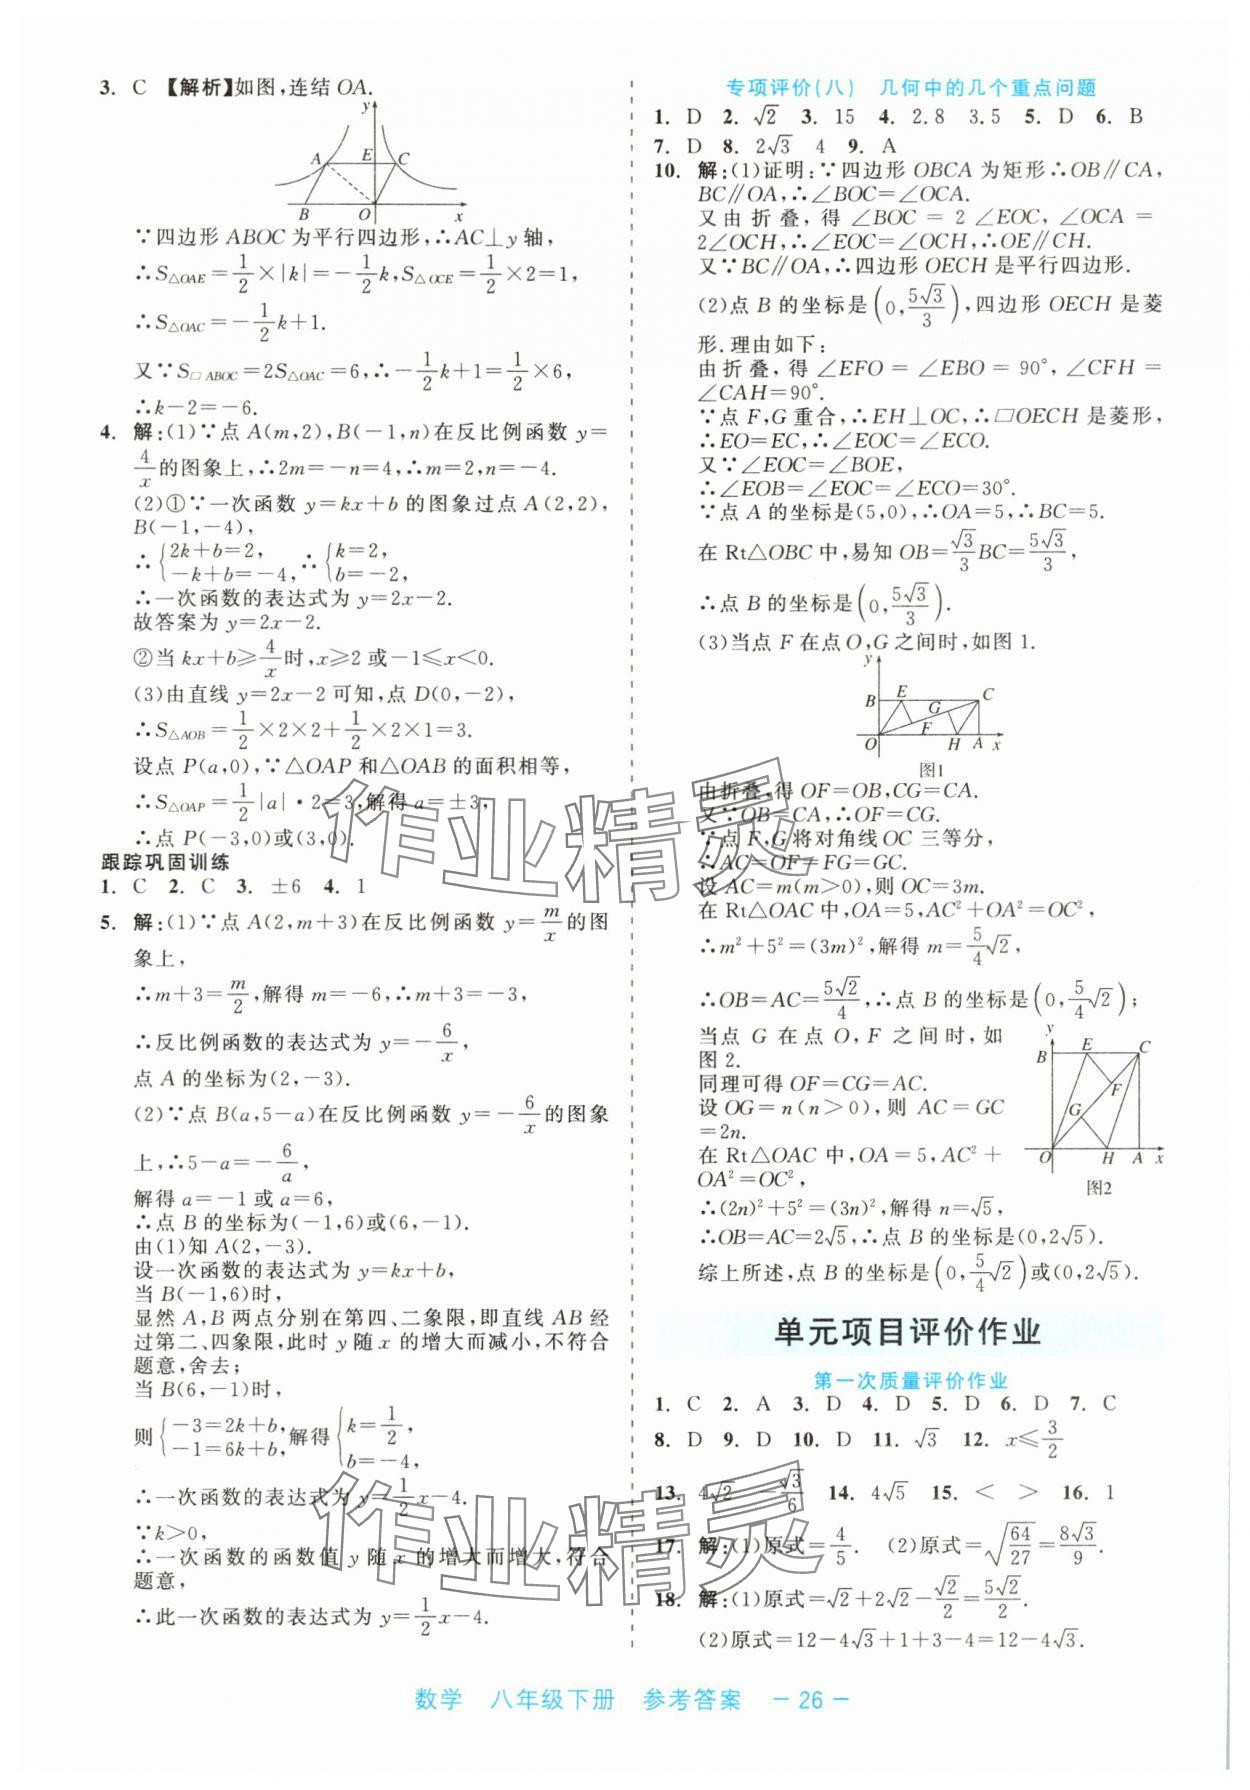 3. C 【解析】如图,连结OA.
y
A E C
B O x
∵四边形 ABOC 为平行四边形,∴AC⊥y 轴,
∴S△OAE=1/2×|k|=-1/2k,S△OCE=1/2×2=1,
∴S△OAC=-1/2k+1.
又∵S□ABOC=2S△OAC=6,∴-1/2k+1=1/2×6,
∴k-2=-6.
4. 解:(1)∵点A(m,2),B(-1,n)在反比例函数 y=
4/x的图象上,∴2m=-n=4,∴m=2,n=-4.
(2)①∵一次函数 y=kx+b 的图象过点 A(2,2),
B(-1,-4),
∴{2k+b=2, -k+b=-4, ∴{k=2, b=-2,
∴一次函数的表达式为 y=2x-2.
故答案为 y=2x-2.
②当 kx+b≥4/x时,x≥2 或-1≤x<0.
(3)由直线 y=2x-2 可知,点 D(0,-2),
∴S△AOB=1/2×2×2+1/2×2×1=3.
设点 P(a,0),∵△OAP 和△OAB 的面积相等,
∴S△OAP=1/2|a|·2=3,解得a=±3,
∴点 P(-3,0)或(3,0).
跟踪巩固训练
1. C 2. C 3. ±6 4. 1
5. 解:(1)∵点 A(2,m+3)在反比例函数 y=m/x的图
象上,
∴m+3=m/2,解得 m=-6,∴m+3=-3,
∴反比例函数的表达式为 y=-6/x,
点 A 的坐标为(2,-3).
(2)∵点 B(a,5-a)在反比例函数 y=-6/x的图象
上,∴5-a=-6/a,
解得 a=-1 或 a=6,
∴点 B 的坐标为(-1,6)或(6,-1).
由(1)知 A(2,-3).
设一次函数的表达式为 y=kx+b,
当 B(-1,6)时,
显然 A,B 两点分别在第四、二象限,即直线 AB 经
过第二、四象限,此时 y 随 x 的增大而减小,不符合
题意,舍去;
当 B(6,-1)时,
则{-3=2k+b, -1=6k+b,解得{k=1/2, b=-4,
∴一次函数的表达式为 y=1/2x-4.
∵k>0,
∴一次函数的函数值 y 随 x 的增大而增大,符合
题意,
∴此一次函数的表达式为 y=1/2x-4.
专项评价(八) 几何中的几个重点问题
1. D 2. √2 3. 15 4. 2.8 3.5 5. D 6. B
7. D 8. 2√3 4 9. A
10. 解:(1)证明:∵四边形 OBCA 为矩形∴OB∥CA,
BC∥OA,∴∠BOC=∠OCA.
又由折叠,得 ∠BOC = 2 ∠EOC, ∠OCA =
2∠OCH,∴∠EOC=∠OCH,∴OE∥CH.
又∵BC∥OA,∴四边形 OECH 是平行四边形.
(2)点 B 的坐标是(0,5√3/3),四边形 OECH 是菱
形.理由如下:
由折叠,得 ∠EFO = ∠EBO = 90°, ∠CFH =
∠CAH=90°.
∵点 F,G 重合,∴EH⊥OC,∴□OECH 是菱形,
∴EO=EC,∴∠EOC=∠ECO.
又∵∠EOC=∠BOE,
∴∠EOB=∠EOC=∠ECO=30°.
∵点 A 的坐标是(5,0),∴OA=5,∴BC=5.
在 Rt△OBC 中,易知 OB=√3/3BC=5√3/3,
∴点 B 的坐标是(0,5√3/3).
(3)当点 F 在点 O,G 之间时,如图 1.
y
B E C
G
F
O H A x
图1
由折叠,得 OF=OB,CG=CA.
又∵OB=CA,∴OF=CG.
∵点 F,G将对角线OC 三等分,
∴AC=OF=FG=GC.
设 AC=m(m>0),则 OC=3m.
在 Rt△OAC 中,OA=5,AC²+OA²=OC²,
∴m²+5²=(3m)²,解得 m=5/4√2,
∴OB=AC=5√2/4,∴点 B 的坐标是(0,5/4√2);
当点 G 在点 O,F 之间时,如
图 2.
同理可得 OF=CG=AC.
设 OG=n(n>0),则 AC=GC
=2n.
在 Rt△OAC 中,OA=5,AC²+
OA²=OC²,
y
B E C
F
G
O H A x
图2
∴(2n)²+5²=(3n)²,解得 n=√5,
∴OB=AC=2√5,∴点 B 的坐标是(0,2√5).
综上所述,点 B 的坐标是(0,5/4√2)或(0,2√5).
单元项目评价作业
第一次质量评价作业
1. C 2. A 3. D 4. D 5. D 6. D 7. C
8. D 9. D 10. D 11. √3 12. x≤3/2
13. 4√2-√3/6 14. 4√5 15. < > 16. 1
17. 解:(1)原式=4/5. (2)原式=√(64/27)=8√3/9.
18. 解:(1)原式=√2+2√2-√2/2=5√2/2.
(2)原式=12-4√3+1+3-4=12-4√3.
数学 八年级下册 参考答案 — 26 —
作业精灵
作业精灵